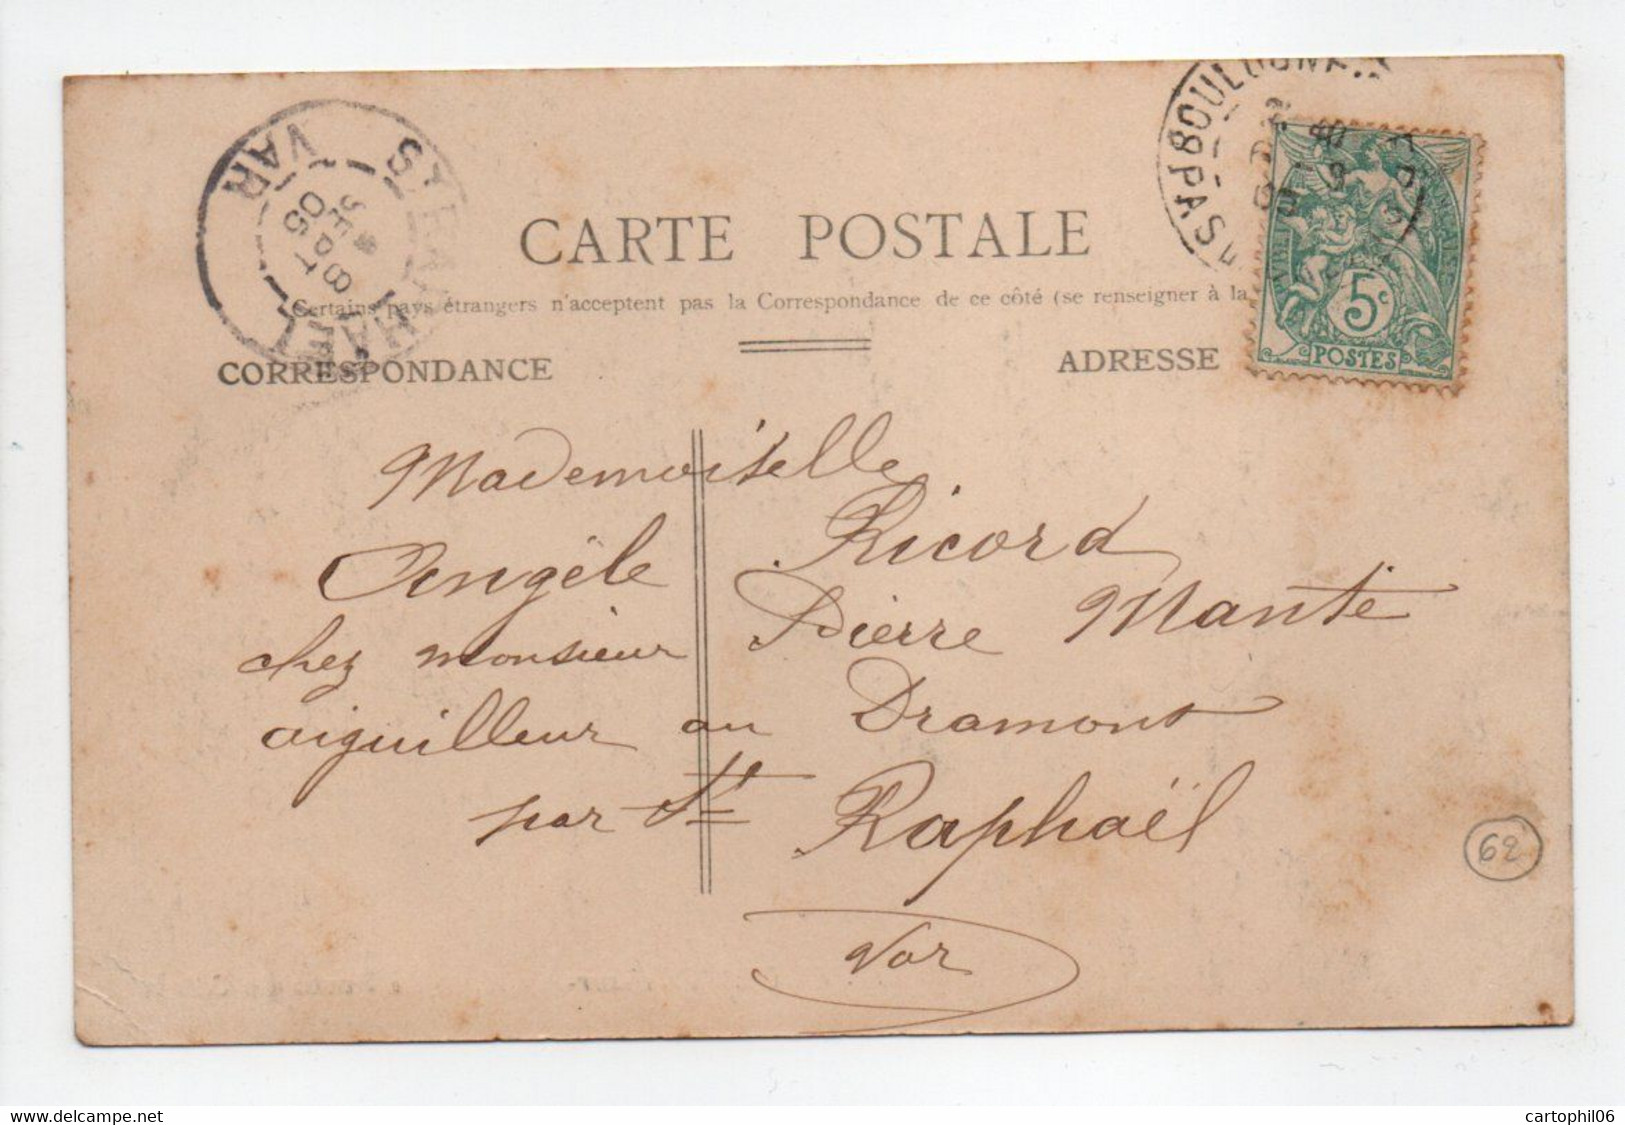 BOULOGNE
PAS
5c
POSTES
VAR
8
SEPT
05
CARTE POSTALE
Certains pays étrangers n'acceptent pas la Correspondance de ce côté (se renseigner à la
CORRESPONDANCE
ADRESSE
Mademoiselle
Angéle Ricord
chez monsieur Pierre Mante
aiguilleur au Dramont
par St Raphaël
Var
62
cartophil06